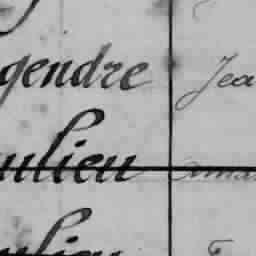 gendre Jea
ulieu aman
ulieu